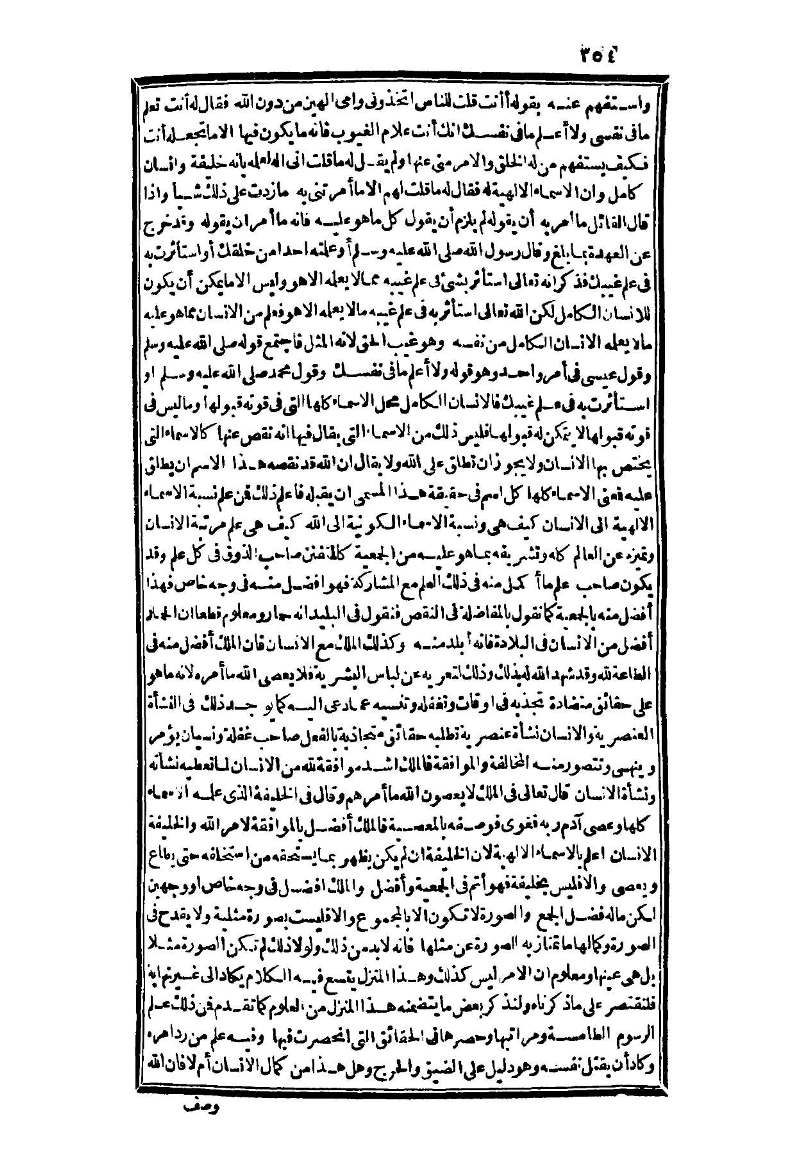 ٣٥٤
واستفهم عنه بقوله أأنت قلت للناس اتخذوني وأمي إلهين من دون الله فقال له أنت تعلم
ما في نفسي ولا أعلم ما في نفسك إنك أنت علام الغيوب فإنه ما يكون فيها إلا ما تجعله أنت
فكيف يستفهم من له الخلق والامر مني عنها ولم يقل له ما قلت اني اله لعلمه بأنه خليفة وانسان
كامل وان الاسماء الالهية له فقال له ما قلت لهم الا ما أمرتني به ما زدت على ذلك شيأ واذا
قال القائل ما أمر به أن يقوله لم يلزم أن يقول كل ما هو عليه فانه ما أمر ان يقوله وقد خرج
عن العهدة بما بلغ وقال رسول الله صلى الله عليه وسلم أو علمته احدا من خلقك أو استأثرت به
في علم غيبك فذكر انه تعالى استأثر بشئ في علم غيبه مما لا يعلمه الا هو وليس الا ما يمكن أن يكون
للانسان الكامل لكن الله تعالى استأثر به في علم غيبه مالا يعلمه الا هو فعلم من الانسان مما هو عليه
مالا يعلمه الانسان الكامل من نفسه وهو غيب الحق لانه المثل فاجتمع قوله صلى الله عليه وسلم
وقول عيسى في أمر واحد وهو قوله ولا أعلم ما في نفسك وقول محمد صلى الله عليه وسلم او
استأثرت به في علم غيبك فالانسان الكامل محل الاسماء كلها التي في قوته قبولها وما ليس في
قوته قبولها لا يتمكن له قبولها فليس ذلك من الاسماء التي يقال فيها انه نقص عنها كالاسماء التي
يختص بها الانسان ولا يجوز ان تطلق على الله ولا يقال ان الله قد نقصه هذا الاسم ان يطلق
عليه فمعنى الاسماء كلها كل اسم في حقيقة هذا المسمى ان يقبله فاعلم ذلك فمن علم نسبة الاسماء
الالهية الى الانسان كيف هي ونسبة الاسماء الكونية الى الله كيف هي علم مرتبة الانسان
وتميزه عن العالم كله وتشريفه بما هو عليه من الجمعية كالمتفنن صاحب الذوق في كل علم وقد
يكون صاحب علم ما أكمل منه في ذلك العلم مع المشاركة فهو افضل منه في وجه خاص فهذا
أفضل منه بالجمعية كما نقول بالمفاضلة في النقص فنقول في البليد انه حمار ومعلوم قطعا ان الحمار
أفضل من الانسان في البلادة فانه أبلد منه وكذلك الملك مع الانسان فان الملك أفضل منه في
الطاعة لله وقد شهد الله له بذلك وذلك لتعريه عن لباس البشرية فلا يعصى الله ما أمره لانه ما هو
على حقائق متضادة تجذبه في اوقات وتغفله وتنسيه عما دعى اليه كما يوجد ذلك في النشأة
العنصرية والانسان نشأة عنصرية تطلبه حقائق متجاذبة بالفعل صاحب غفلة ونسيان يؤمر
وينهى وتتصور منه المخالفة والموافقة فالملك اشد موافقة لله من الانسان لما تعطيه نشأته
ونشأة الانسان قال تعالى في الملك لا يعصون الله ما أمرهم وقال في الخليفة الذي علمه الاسماء
كلها وعصى آدم ربه فغوى فوصفه بالمعصية فالملك أفضل بالموافقة لامر الله والخليفة
الانسان اعلم بالاسماء الالهية لان الخليفة ان لم يكن يظهر بما يستحقه من استخلفه حتى يطاع
ويعصى والا فليس بخليفة فهو أتم في الجمعية وأفضل والملك افضل في وجه خاص او وجهين
لكن ماله فضل الجمع والصورة لا تكون الا بالمجموع والا فليست بصورة مثلية ولا يقدح في
الصورة وكمالها ما تمتاز به الصورة عن مثلها فانه لابد من ذلك ولولا ذلك لم تكن الصورة مثلا
بل هي عينها ومعلوم ان الامر ليس كذلك وهذا المنزل يتسع فيه الكلام يكاد الى غير نهاية
فلنقتصر على ما ذكرناه ولنذكر بعض ما يتضمنه هذا المنزل من العلوم كما تقدم فمن ذلك علم
الرسوم الطامسة ومراتبها وحصرها في الحقائق التي انحصرت فيها وفيه علم من رد امره
وكاد أن يقتل نفسه وهو دليل على الضيق والحرج وهل هذا من كمال الانسان أم لا فان الله
وصف